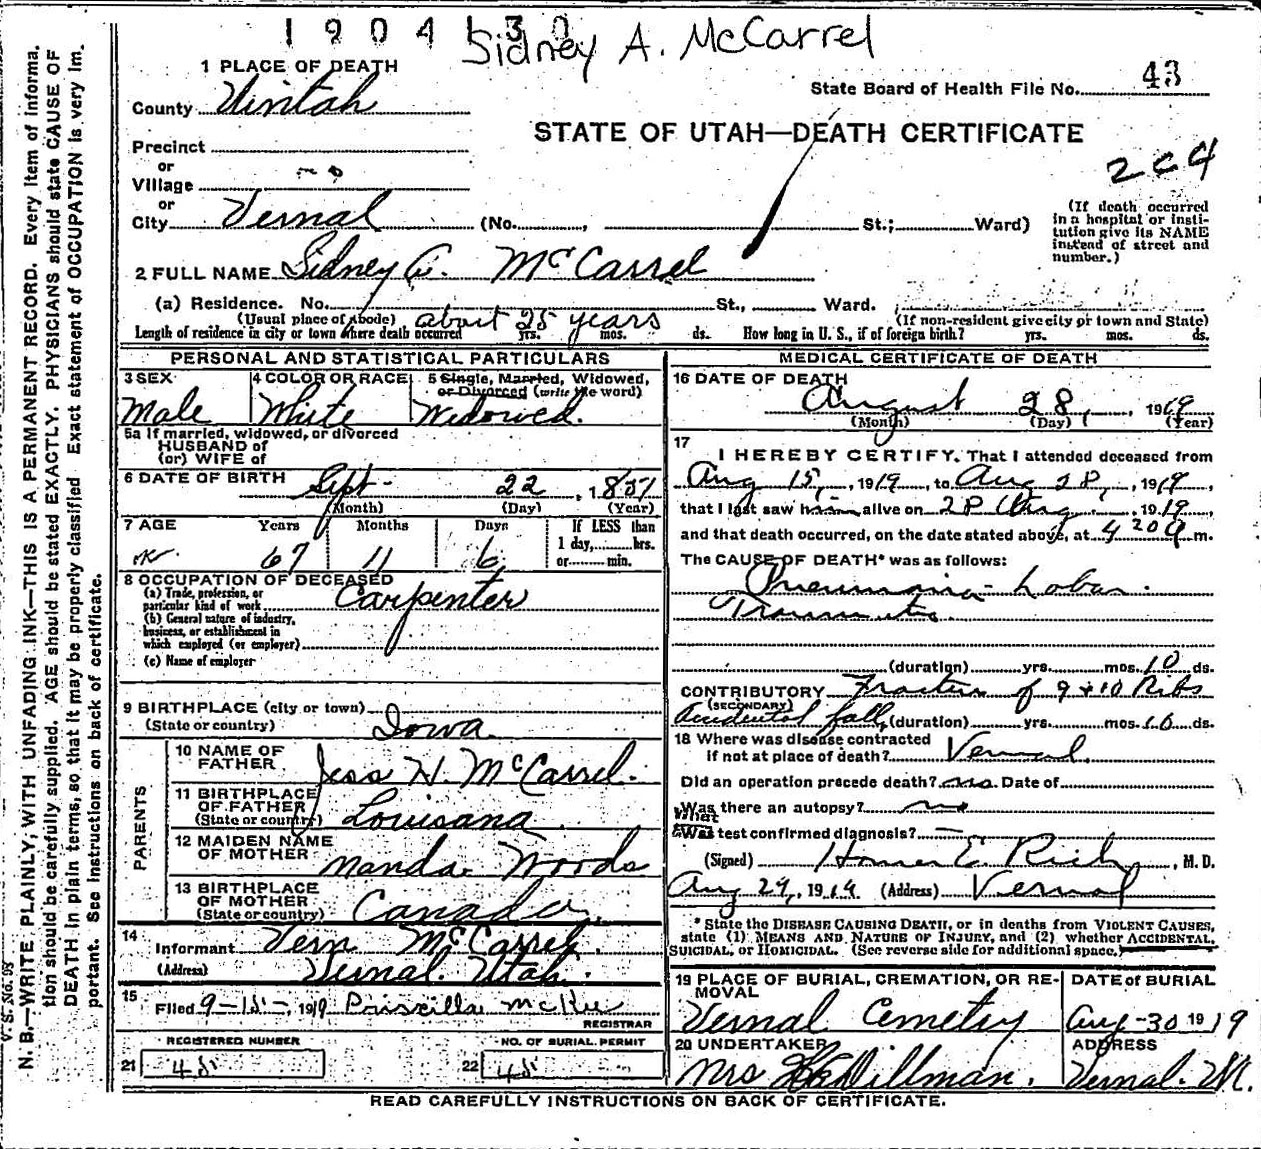 1904130
Sidney A. McCarrel
1 PLACE OF DEATH
County Uintah
State Board of Health File No. 43
STATE OF UTAH—DEATH CERTIFICATE
Precinct
or
Village
or
City Vernal (No. , St.; Ward)
204
(If death occurred in a hospital or insti-
tution give its NAME
instead of street and
number.)
2 FULL NAME Sidney A. McCarrel
(a) Residence. No. St., Ward.
(Usual place of abode) (If non-resident give city or town and State)
Length of residence in city or town where death occurred about 25 years yrs. mos. ds. How long in U. S., if of foreign birth? yrs. mos. ds.
PERSONAL AND STATISTICAL PARTICULARS
3 SEX Male
4 COLOR OR RACE White
5 Single, Married, Widowed,
or Divorced (write the word)
Widowed.
5a If married, widowed, or divorced
HUSBAND of
(or) WIFE of
6 DATE OF BIRTH Sept 22, 1851
(Month) (Day) (Year)
7 AGE Years Months Days If LESS than
1 day, hrs.
or min.
67 11 6
8 OCCUPATION OF DECEASED
(a) Trade, profession, or
particular kind of work Carpenter
(b) General nature of industry,
business, or establishment in
which employed (or employer)
(c) Name of employer
9 BIRTHPLACE (city or town)
(State or country) Iowa
PARENTS
10 NAME OF
FATHER Jess H. McCarrel.
11 BIRTHPLACE
OF FATHER
(State or country) Louisana
12 MAIDEN NAME
OF MOTHER Manda Woods
13 BIRTHPLACE
OF MOTHER
(State or country) Canada
14
Informant Vern McCarrel.
(Address) Vernal Utah.
15
Filed 9-15-, 1919 Priscilla McKee
REGISTRAR
REGISTERED NUMBER
21 45
NO. OF BURIAL PERMIT
22 45
MEDICAL CERTIFICATE OF DEATH
16 DATE OF DEATH
August 28, 1919
(Month) (Day) (Year)
17
I HEREBY CERTIFY. That I attended deceased from
Aug 15, 1919, to Aug 28, 1919,
that I last saw him alive on 28 Aug 1919,
and that death occurred, on the date stated above, at 4 20 a m.
The CAUSE OF DEATH* was as follows:
Pneumonia - Lobar
Traumatic
(duration) yrs. mos. 10 ds.
CONTRIBUTORY Fracture of 9 + 10 Ribs
(SECONDARY)
Accidental fall (duration) yrs. mos. 10 ds.
18 Where was disease contracted
if not at place of death? Vernal.
Did an operation precede death? no Date of
Was there an autopsy? no
What
Was test confirmed diagnosis? —
(Signed) Homer E. Rich, M. D.
Aug 29, 1919 (Address) Vernal
*State the DISEASE CAUSING DEATH, or in deaths from VIOLENT CAUSES,
state (1) MEANS AND NATURE OF INJURY, and (2) whether ACCIDENTAL,
SUICIDAL, or HOMICIDAL. (See reverse side for additional space.)
19 PLACE OF BURIAL, CREMATION, OR RE-
MOVAL
Vernal Cemetry
DATE of BURIAL
Aug-30 1919
20 UNDERTAKER
Mrs Dillman.
ADDRESS
Vernal. Ut.
READ CAREFULLY INSTRUCTIONS ON BACK OF CERTIFICATE.
V. S. No. 98
N. B.—WRITE PLAINLY, WITH UNFADING INK—THIS IS A PERMANENT RECORD. Every item of informa-
tion should be carefully supplied. AGE should be stated EXACTLY. PHYSICIANS should state CAUSE OF
DEATH in plain terms, so that it may be properly classified. Exact statement of OCCUPATION is very im-
portant. See instructions on back of certificate.